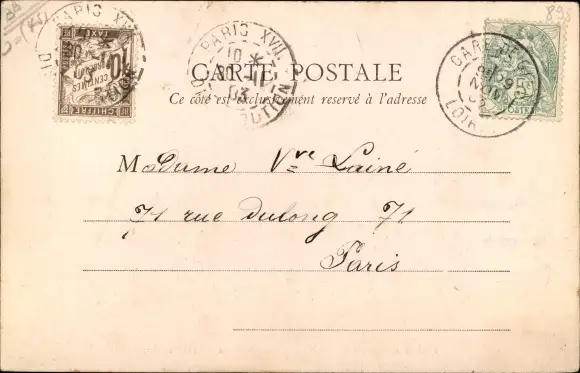 PARIS XVII
DISTRIBUTION
10
03
CHIFFRE
10
CENTIMES
À PERCEVOIR
TAXE
CARTE POSTALE
Ce côté est exclusivement reservé à l'adresse
GARE DE
LOIRET
Madame Vve Lainé
71 rue Dulong 71
Paris